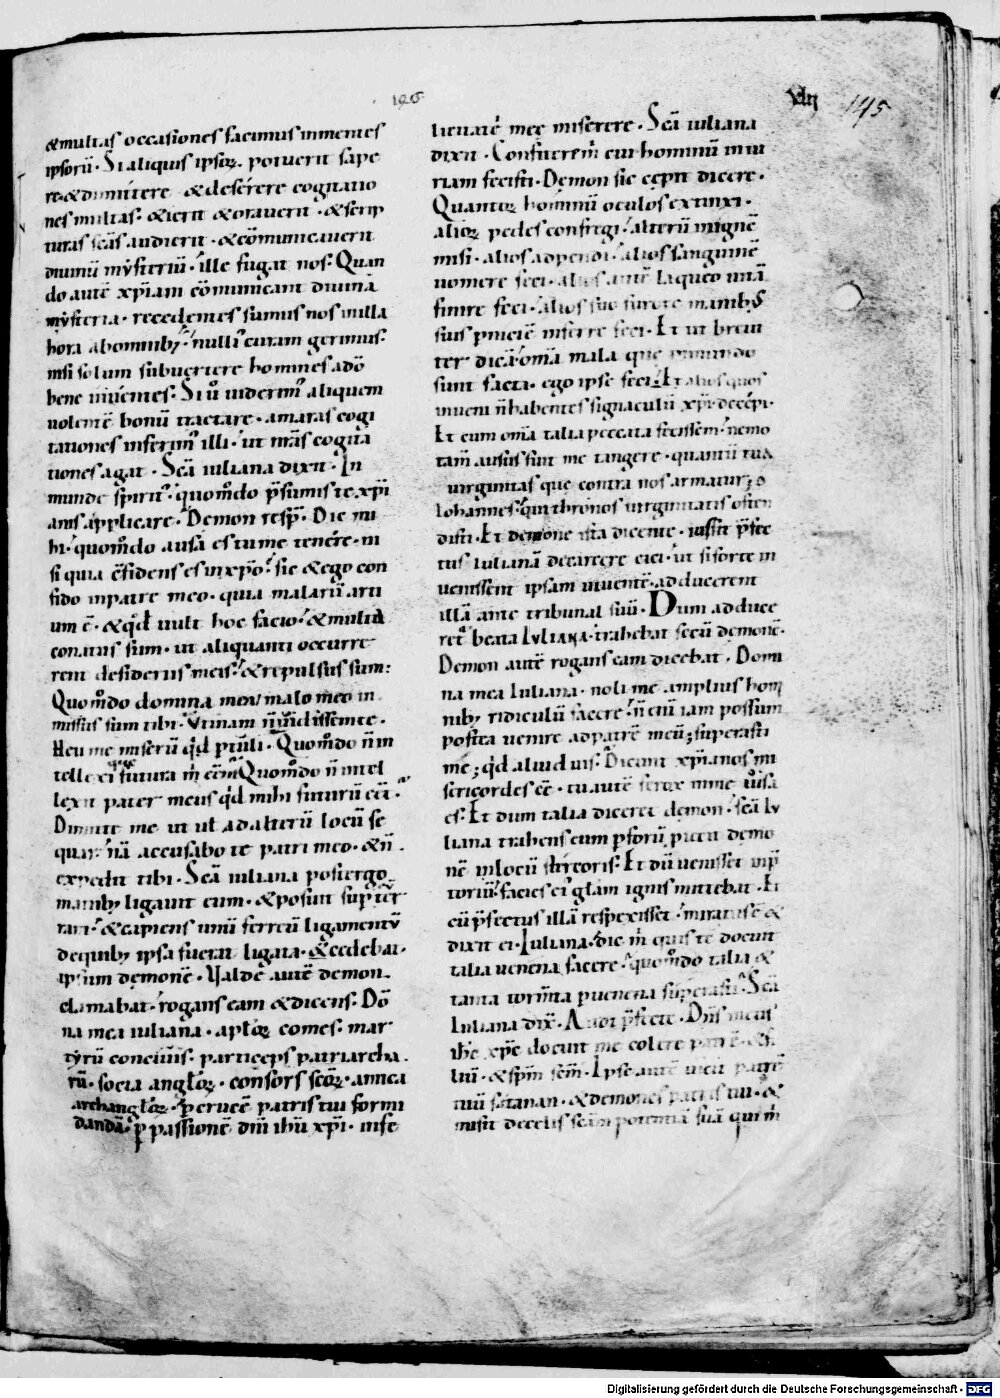 126
145
& multas occasiones facimus in mentes
ipsorū. Si aliquis ipsoꝝ potuerit sape
re & dimittere & deserere cogitatio
nes multas. & ierit & orauerit. & scrip
turas scās audierit. & cōmunicauerit
diuinū mẏsteriū. ille fugat nos. Quan
do autē xp̄iani cōmunicant diuina
mẏsteria. recedentes sumus nos in illa
hora ab omnibꝫ. nulli' curam gerimus.
nisi solum subuertere homines ad o
bene uiuentes. Si ů uiderim' aliquem
uolentē bonū tractare. amaras cogi
tationes inferim' illi. ut nr̄as cogita
tiones agat. Scā iuliana dixit. In
munde spirit'. quom̊do p̄sumis te xp̄i
anis applicare. Demon resp̄. Dic mi
hi. quom̊do ausa es tu me tenere. ni
si quia c̄fidens es in xp̄o. sic & ego con
fido in patre meo. quia malarū arti
um ē. & qd̄ uult hoc facio. & multa
conatus sum. ut aliquanti occurre
rent desideriis meis. & repulsus sum.
Quom̊do domina mea malo meo in
missus sum tibi. Vtinam
Heu me miserū qd̄ ptuli. Quom̊do n̄ in
tellexi futura m̄ Quom̊do n̄ intel
lexit pater meus qd̄ mihi futurū eēt.
Dimitte me ut uł ad alterū locū se
quar. nā accusabo te patri meo. & n̄
expedit tibi. Scā iuliana post ergo
manibꝫ ligauit eum. & posuit sup ter
ram. & capiens unū ferreū ligamentū
de quibꝫ ipsa fuerat ligata. & cedebat
ipsum demonē. Valde autē demon
clamabat. rogans eam & dicens. Do
na mea iuliana. apłoꝝ comes. mar
tẏrū conciuis. particeps patriarcha
rū. socia angłoꝝ. consors scōꝝ. amica
archangłoꝝ. per crucē patris tui formi
dandā. p passionē dn̄i ih̄u xp̄i. infe
licitati mee miserere. Scā iuliana
dixit. Confitere m̄ cui hominū iniu
riam fecisti. Demon sic cepit dicere.
Quantoꝝ hominū oculos extinxi.
alioꝝ pedes confregi. alterū in ignē
misi. alios adpendi. alios sanguinē
uomere feci. alios autē laqueo uitā
finire feci. alios suo furore manibꝫ
suis pniciē inferre feci. Et ut breui
ter dicā. omā mala que in mundo
sunt facta. ego ipse feci. Et alios quos
inueni n̄ habentes signaculū xp̄i. decepi.
Et cum omā talia peccata fecissem. nemo
tam̄ ausus fuit me tangere. quantū tua
uirginitas que contra nos armatur; o
Iohannes. qui thronos uirginitatis osten
disti. Et demone ista dicente. iussit p̄fec
tus iulianā de carcere eici. ut si forte in
uenissent ipsam uiuentē. adducerent
illā ante tribunal suū. Dum adduce
ret' beata IVLIANA. trahebat secū demonē.
Demon autē rogans eam dicebat. Domi
na mea Iuliana. noli me amplius homi
nibꝫ ridiculū facere. n̄ eni iam possum
postea uenire ad patrē meū; superasti
me; qd̄ aliud uis. Dicunt xp̄ianos mi
sericordes eē. tu autē ferox in me uisa
es. Et dum talia diceret demon. scā Iu
liana trahens eum p forū piecit demo
nē in locū stercoris. Et dū uenisset in p̄
toriū. facies ei' q̄dam ignis mittebat. Et
cū p̄fectus illā respexisset. miratus ē &
dixit ei. Iuliana. dic m̄ quis te docuit
talia uenena facere. quom̊do talia &
tanta torm̄ta p uenena superasti. Scā
Iuliana dix̄. Audi p̄fecte. Dn̄s meus
ih̄c xp̄c docuit me colere patrē. & fi
liū. & sp̄m scm̄. Ipse autē uicit patrē
tuū satanan. & demones patris tui. &
misit de celis scām potentiā suā qui m̄